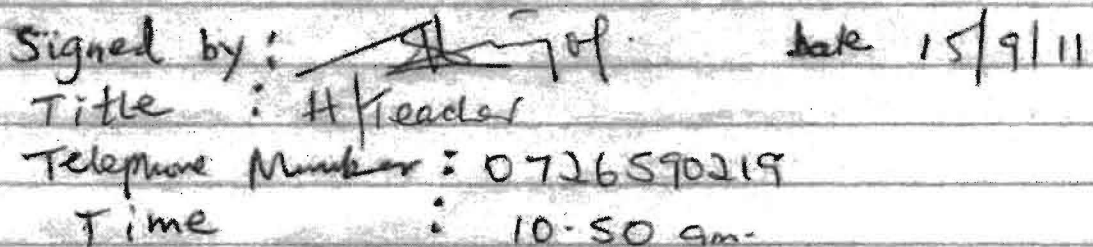 Signed by : date 15/9/11
Title : H/Teacher
Telephone Number : 0726590219
Time : 10.50 am.